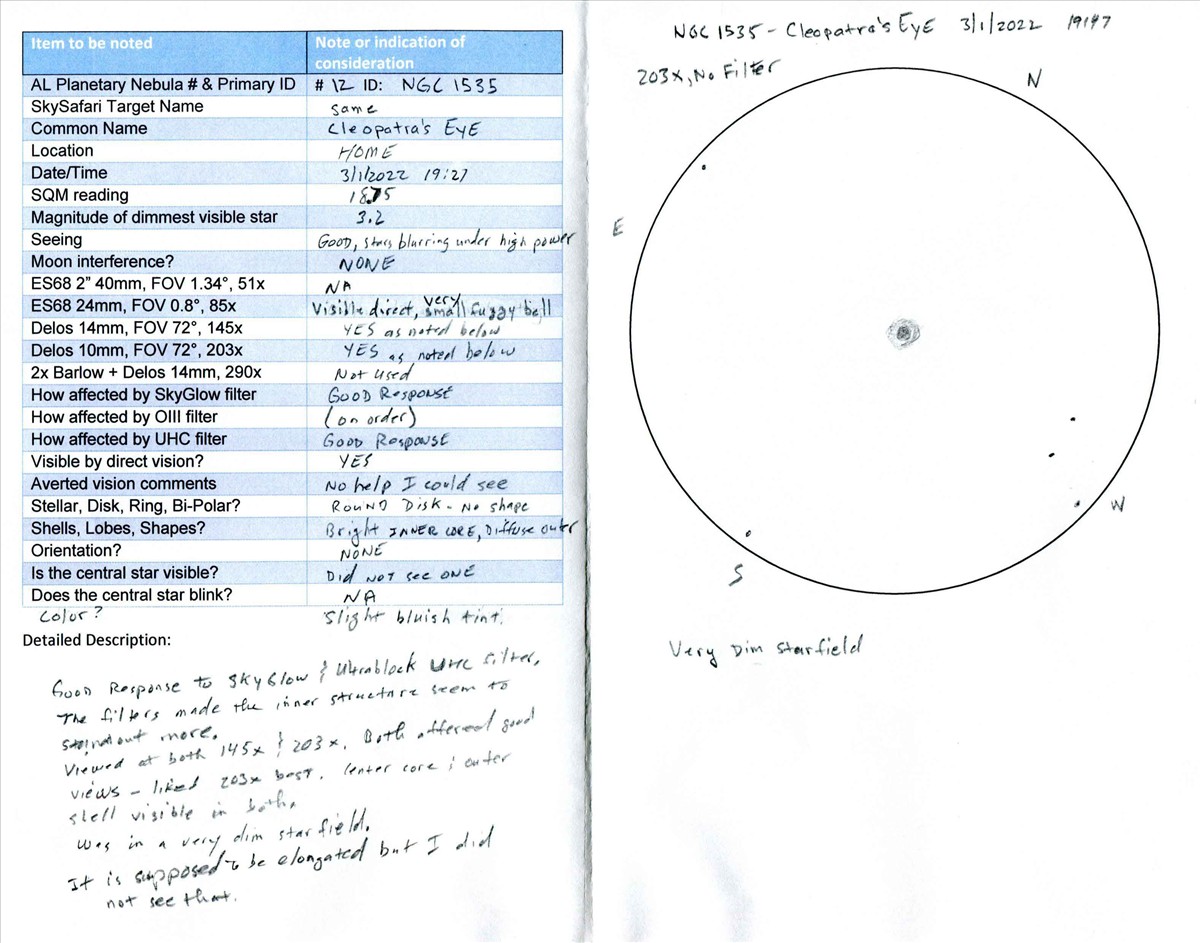 Item to be noted Note or indication of consideration
AL Planetary Nebula # & Primary ID # 12 ID: NGC 1535
SkySafari Target Name same
Common Name Cleopatra's EyE
Location HOME
Date/Time 3/1/2022 19:27
SQM reading 18.75
Magnitude of dimmest visible star 3.2
Seeing GOOD, stars blurring under high power
Moon interference? NONE
ES68 2" 40mm, FOV 1.34°, 51x NA
ES68 24mm, FOV 0.8°, 85x Visible direct, very small fuzzy ball
Delos 14mm, FOV 72°, 145x YES as noted below
Delos 10mm, FOV 72°, 203x YES as noted below
2x Barlow + Delos 14mm, 290x Not used
How affected by SkyGlow filter GOOD RESPONSE
How affected by OIII filter (on order)
How affected by UHC filter GOOD RESPONSE
Visible by direct vision? YES
Averted vision comments No help I could see
Stellar, Disk, Ring, Bi-Polar? ROUND DISK - No shape
Shells, Lobes, Shapes? Bright INNER CORE, Diffuse outer
Orientation? NONE
Is the central star visible? Did NOT see ONE
Does the central star blink? NA
Color? Slight bluish tint.
Detailed Description:
Good Response to SkyGlow & Ultrablock UHC filter.
The filters made the inner structure seem to
standout more.
Viewed at both 145x & 203x. Both offered good
views - liked 203x best. Center core & outer
shell visible in both.
Was in a very dim star field.
It is supposed to be elongated but I did
not see that.
NGC 1535 - Cleopatra's EyE 3/1/2022 19:47
203x, No Filter
N
E
W
S
Very Dim starfield